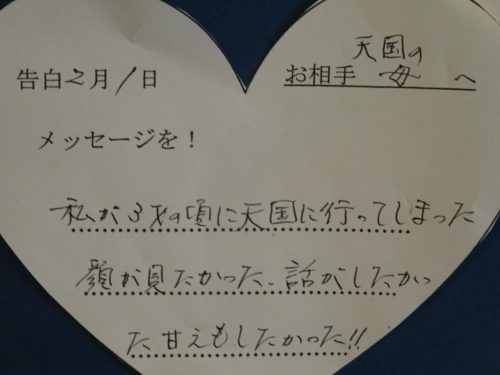 告白2月1日
天国の
お相手 母 へ
メッセージを！
私が3才の頃に天国に行ってしまった
顔が見たかった、話がしたかっ
た甘えもしたかった!!